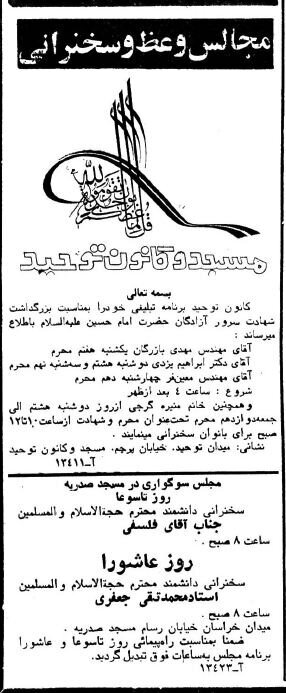 مجالس وعظ و سخنرانی
مسجد و کانون توحید
بسمه تعالی
کانون توحید برنامه تبلیغی خود را بمناسبت بزرگداشت
شهادت سرور آزادگان حضرت امام حسین علیه‌السلام باطلاع
میرساند :
آقای مهندس مهدی بازرگان یکشنبه هفتم محرم
آقای دکتر ابراهیم یزدی دوشنبه هشتم و سه‌شنبه نهم محرم
آقای مهندس معین‌فر چهارشنبه دهم محرم
شروع : ساعت ۴ بعد از ظهر
و همچنین خانم منیره گرجی از روز دوشنبه هشتم الی
جمعه دوازدهم محرم تحت عنوان محرم و شهادت از ساعت ۱۰ تا ۱۲
صبح برای بانوان سخنرانی مینمایند .
نشانی: میدان توحید، خیابان پرچم، مسجد و کانون توحید
آ-۱۳۴۱۱
مجلس سوگواری در مسجد صدریه
روز تاسوعا
سخنرانی دانشمند محترم حجة‌الاسلام و المسلمین
جناب آقای فلسفی
ساعت ۸ صبح .
روز عاشورا
سخنرانی دانشمند محترم حجة‌الاسلام و المسلمین
استاد محمد تقی جعفری
ساعت ۸ صبح .
میدان خراسان خیابان رسام مسجد صدریه .
ضمنا بمناسبت راه‌پیمائی روز تاسوعا و عاشورا
برنامه مجلس به‌ساعات فوق تبدیل گردید.
آ-۱۳۴۲۳